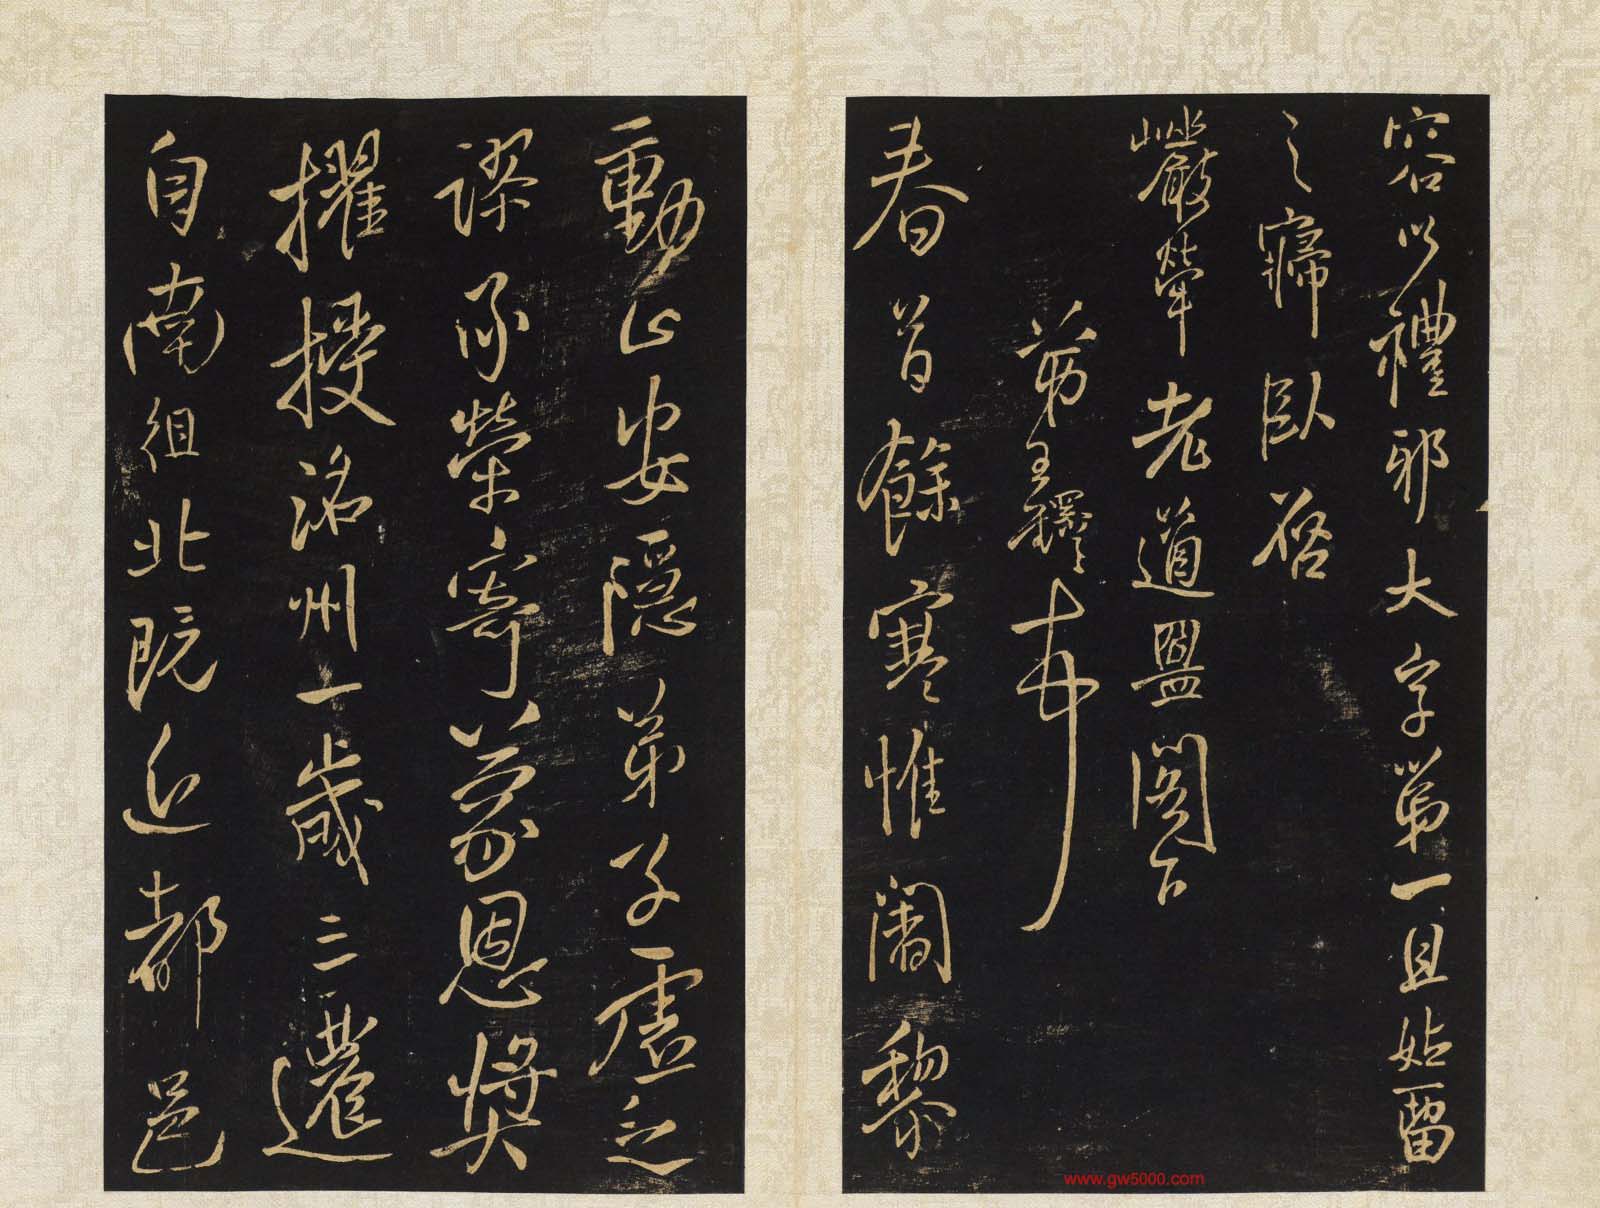 容以禮邪大字第一且姑留
之寤臥啓
巖犖老道盟閣下
弟王鐸
春首餘寒惟闍黎
動止安隱弟子虛乏
謬承榮寄蒙恩獎
擢授洺州一歲三遷
自南徂北既近都邑
www.gw5000.com